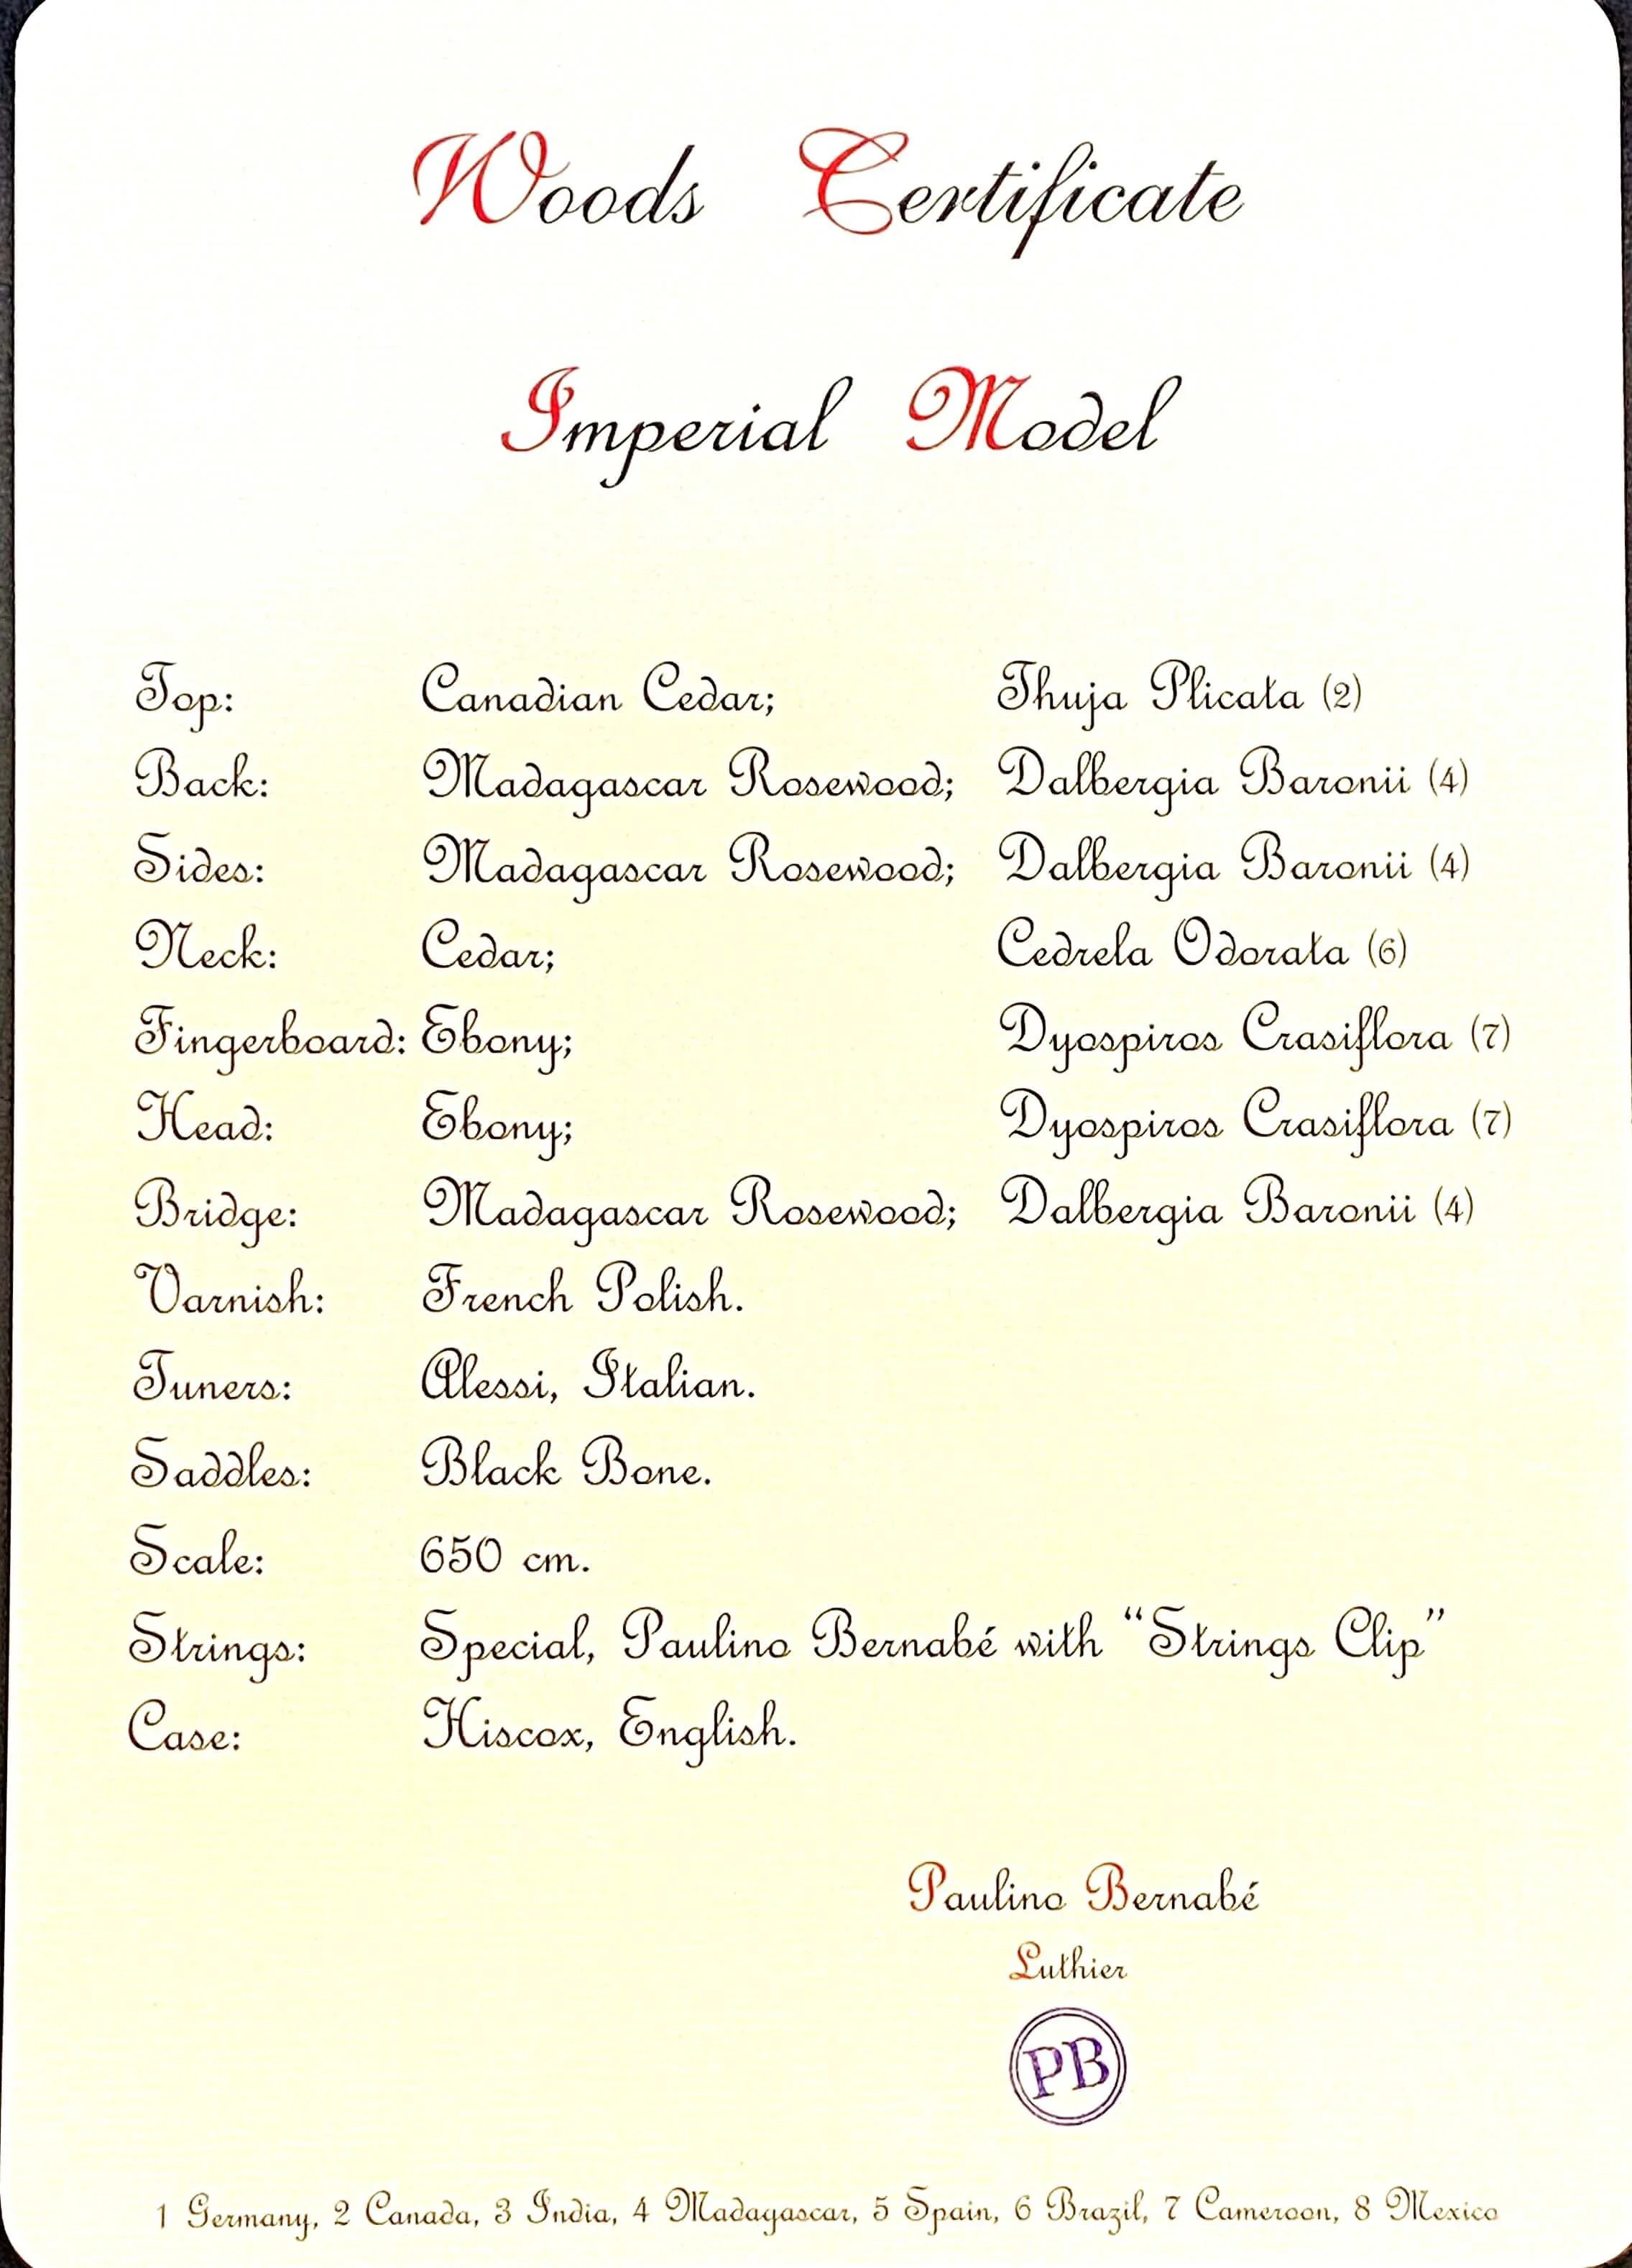 Woods Certificate
Imperial Model
Top: Canadian Cedar; Thuja Plicata (2)
Back: Madagascar Rosewood; Dalbergia Baronii (4)
Sides: Madagascar Rosewood; Dalbergia Baronii (4)
Neck: Cedar; Cedrela Odorata (6)
Fingerboard: Ebony; Dyospiros Crasiflora (7)
Head: Ebony; Dyospiros Crasiflora (7)
Bridge: Madagascar Rosewood; Dalbergia Baronii (4)
Varnish: French Polish.
Tuners: Alessi, Italian.
Saddles: Black Bone.
Scale: 650 cm.
Strings: Special, Paulino Bernabé with “Strings Clip”
Case: Hiscox, English.
Paulino Bernabé
Luthier
PB
1 Germany, 2 Canada, 3 India, 4 Madagascar, 5 Spain, 6 Brazil, 7 Cameroon, 8 Mexico